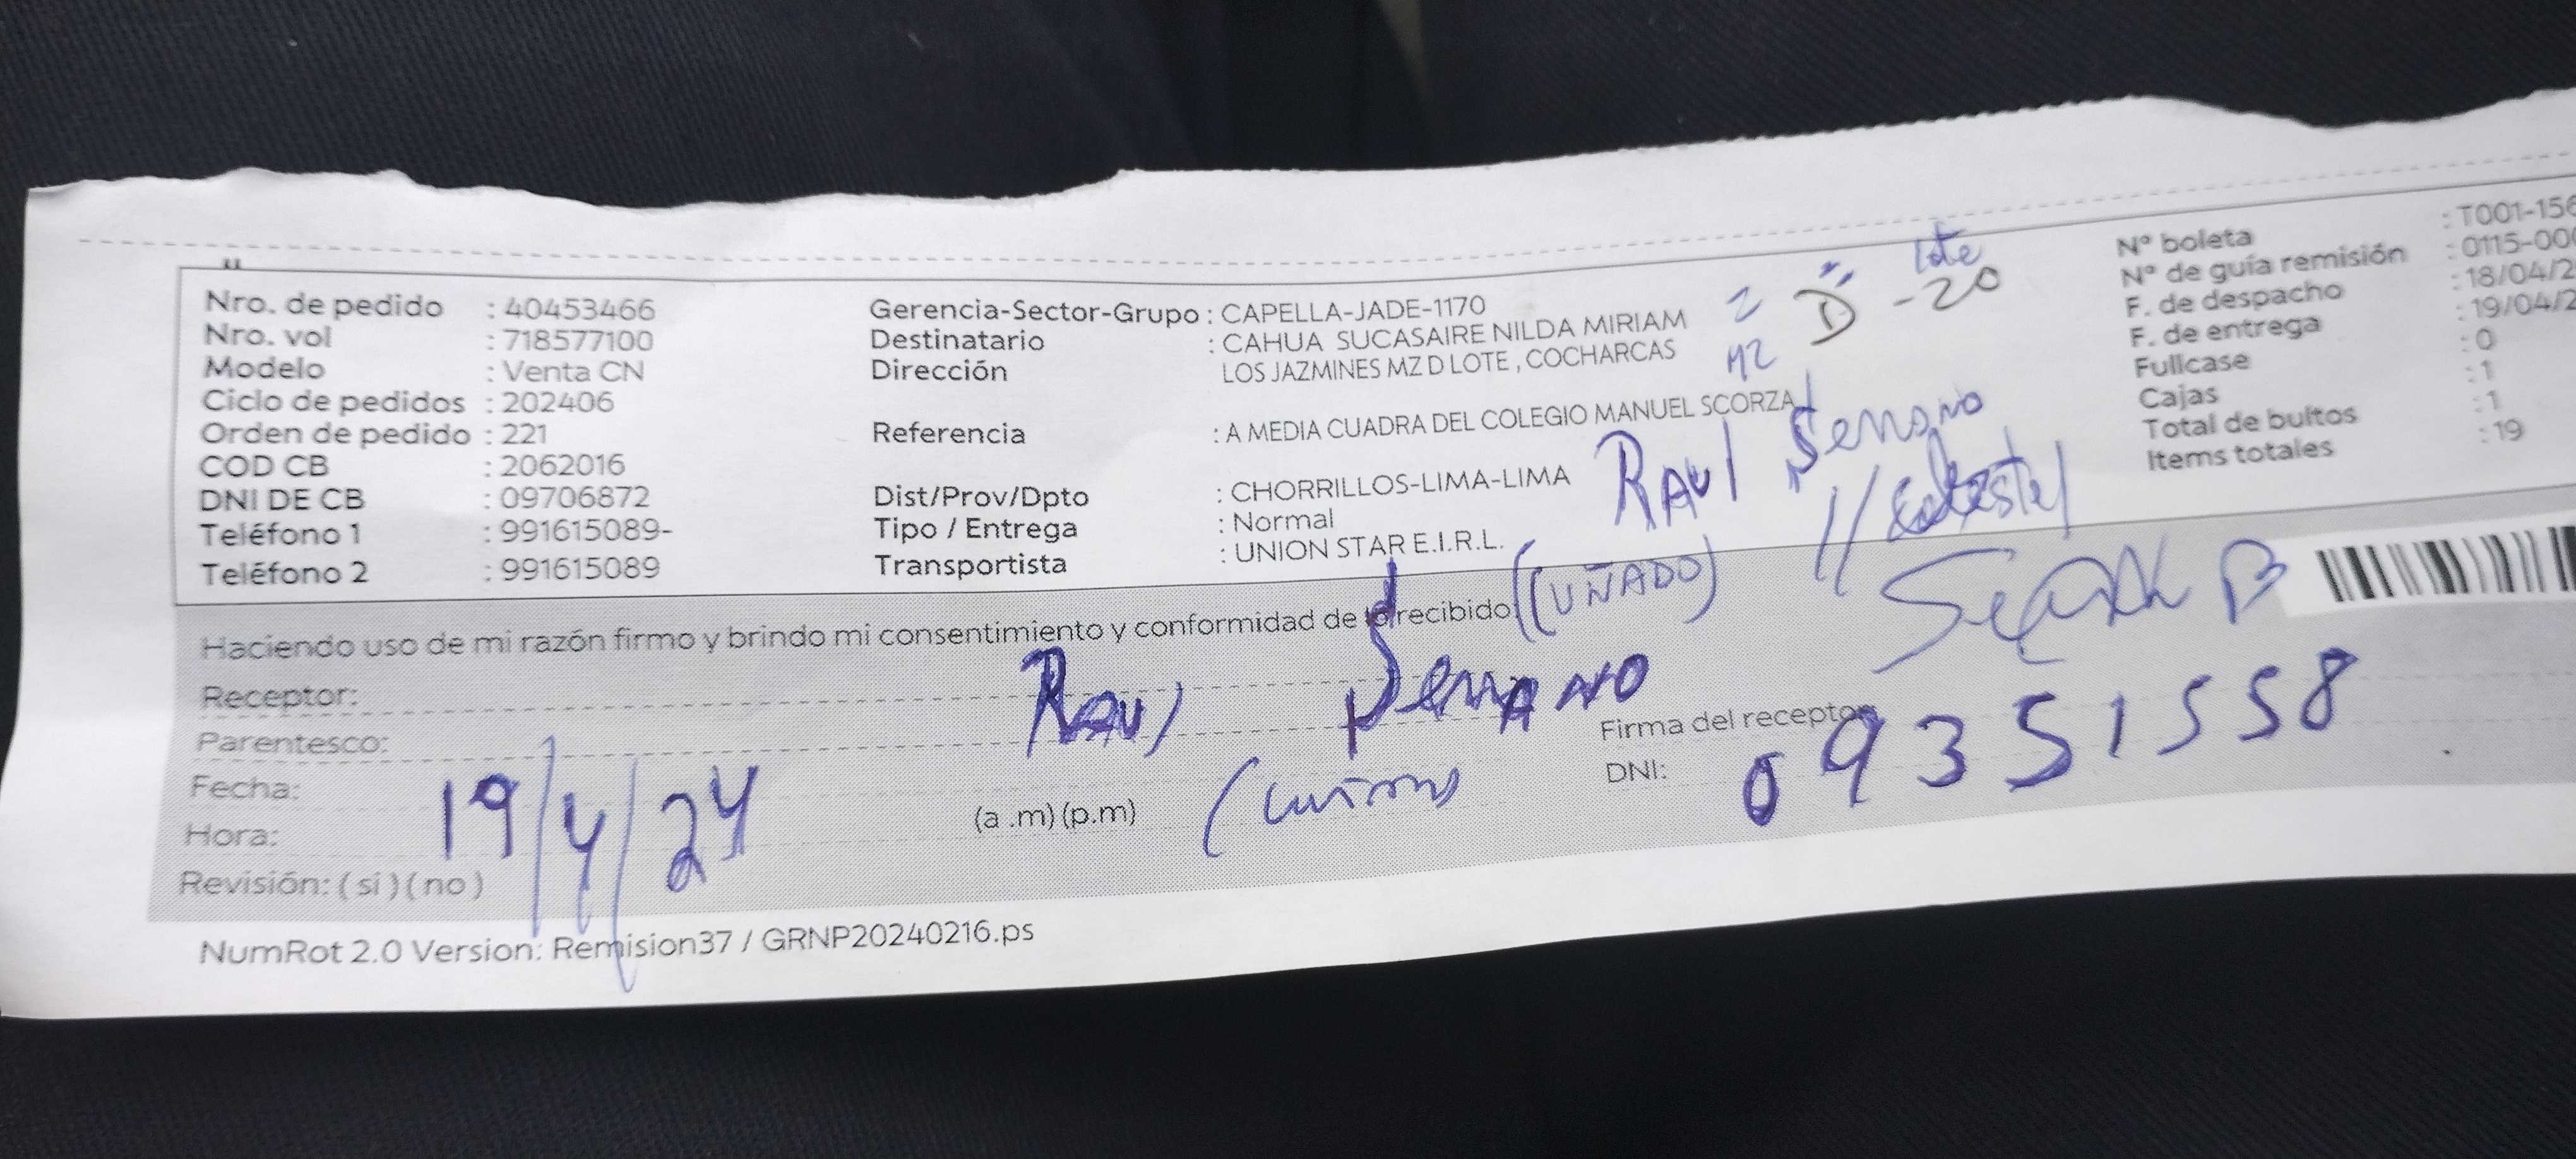 Nro. de pedido : 40453466
Nro. vol : 718577100
Modelo : Venta CN
Ciclo de pedidos : 202406
Orden de pedido : 221
COD CB : 2062016
DNI DE CB : 09706872
Teléfono 1 : 991615089-
Teléfono 2 : 991615089
Gerencia-Sector-Grupo : CAPELLA-JADE-1170
Destinatario : CAHUA SUCASAIRE NILDA MIRIAM
Dirección LOS JAZMINES MZ D LOTE , COCHARCAS
Referencia : A MEDIA CUADRA DEL COLEGIO MANUEL SCORZA
Dist/Prov/Dpto : CHORRILLOS-LIMA-LIMA
Tipo / Entrega : Normal
Transportista : UNION STAR E.I.R.L.
lote
MZ "D" -20
RAUl Serrano
(CUÑADO)
Nº boleta : T001-156
Nº de guía remisión : 0115-000
F. de despacho : 18/04/2
F. de entrega : 19/04/2
Fullcase : 0
Cajas : 1
Total de bultos : 1
Items totales : 19
Haciendo uso de mi razón firmo y brindo mi consentimiento y conformidad de lo recibido:
Receptor: RAUl Serrano
Parentesco:
Firma del receptor
Fecha: 19/4/24
DNI: 09351558
Hora: (a .m) (p.m)
Revisión: ( si ) ( no )
NumRot 2.0 Version: Remision37 / GRNP20240216.ps